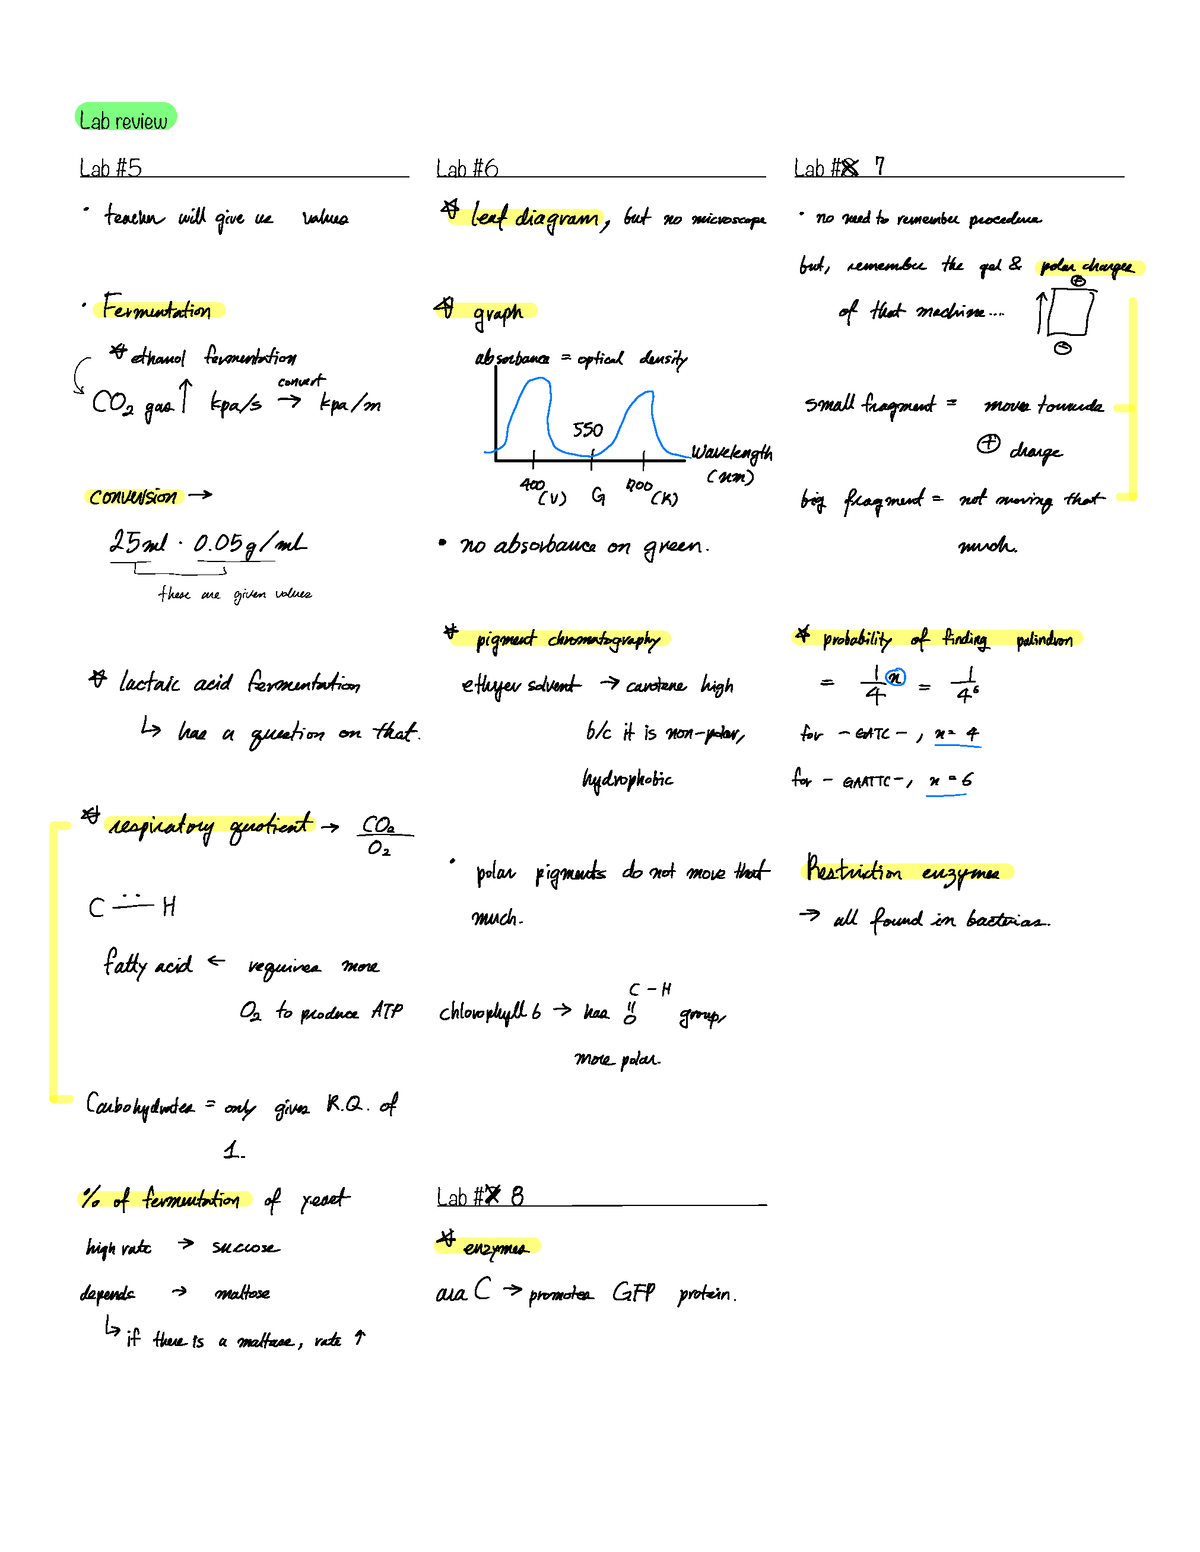 Lab review
Lab #5
• teacher will give us values
• Fermentation
ethanol fermentation
CO2 gas ↑ kpa/s → kpa/m
convert
conversion →
25ml · 0.05g/ml
these are given values
lactaic acid fermentation
↳ has a question on that.
respiratory quotient → CO2
O2
C — H
fatty acid ← requires more
O2 to produce ATP
Carbohydrates = only gives R.Q. of
1.
% of fermentation of yeast
high rate → sucrose
depends → maltose
↳ if there is a maltase, rate ↑
Lab #6
leaf diagram, but no microscope
graph
absorbance = optical density
550
wavelength
(nm)
400 (V) G 700 (R)
• no absorbance on green.
pigment chromatography
solvent → carotene high
b/c it is non-polar,
hydrophobic
• polar pigments do not move that
much.
C - H
chlorophyll b → has O group,
more polar.
Lab #7 8
enzymes
ara C → promotes GFP protein.
Lab #8 7
• no need to remember procedure
but, remember the gel & polar charges
+
of that machine....
−
small fragment = moves towards
+ charge
big fragment = not moving that
much.
probability of finding palindron
= 1/4^n = 1/4^6
for - GATC - , n = 4
for - GAATTC -, n = 6
Restriction enzymes
→ all found in bacterias.